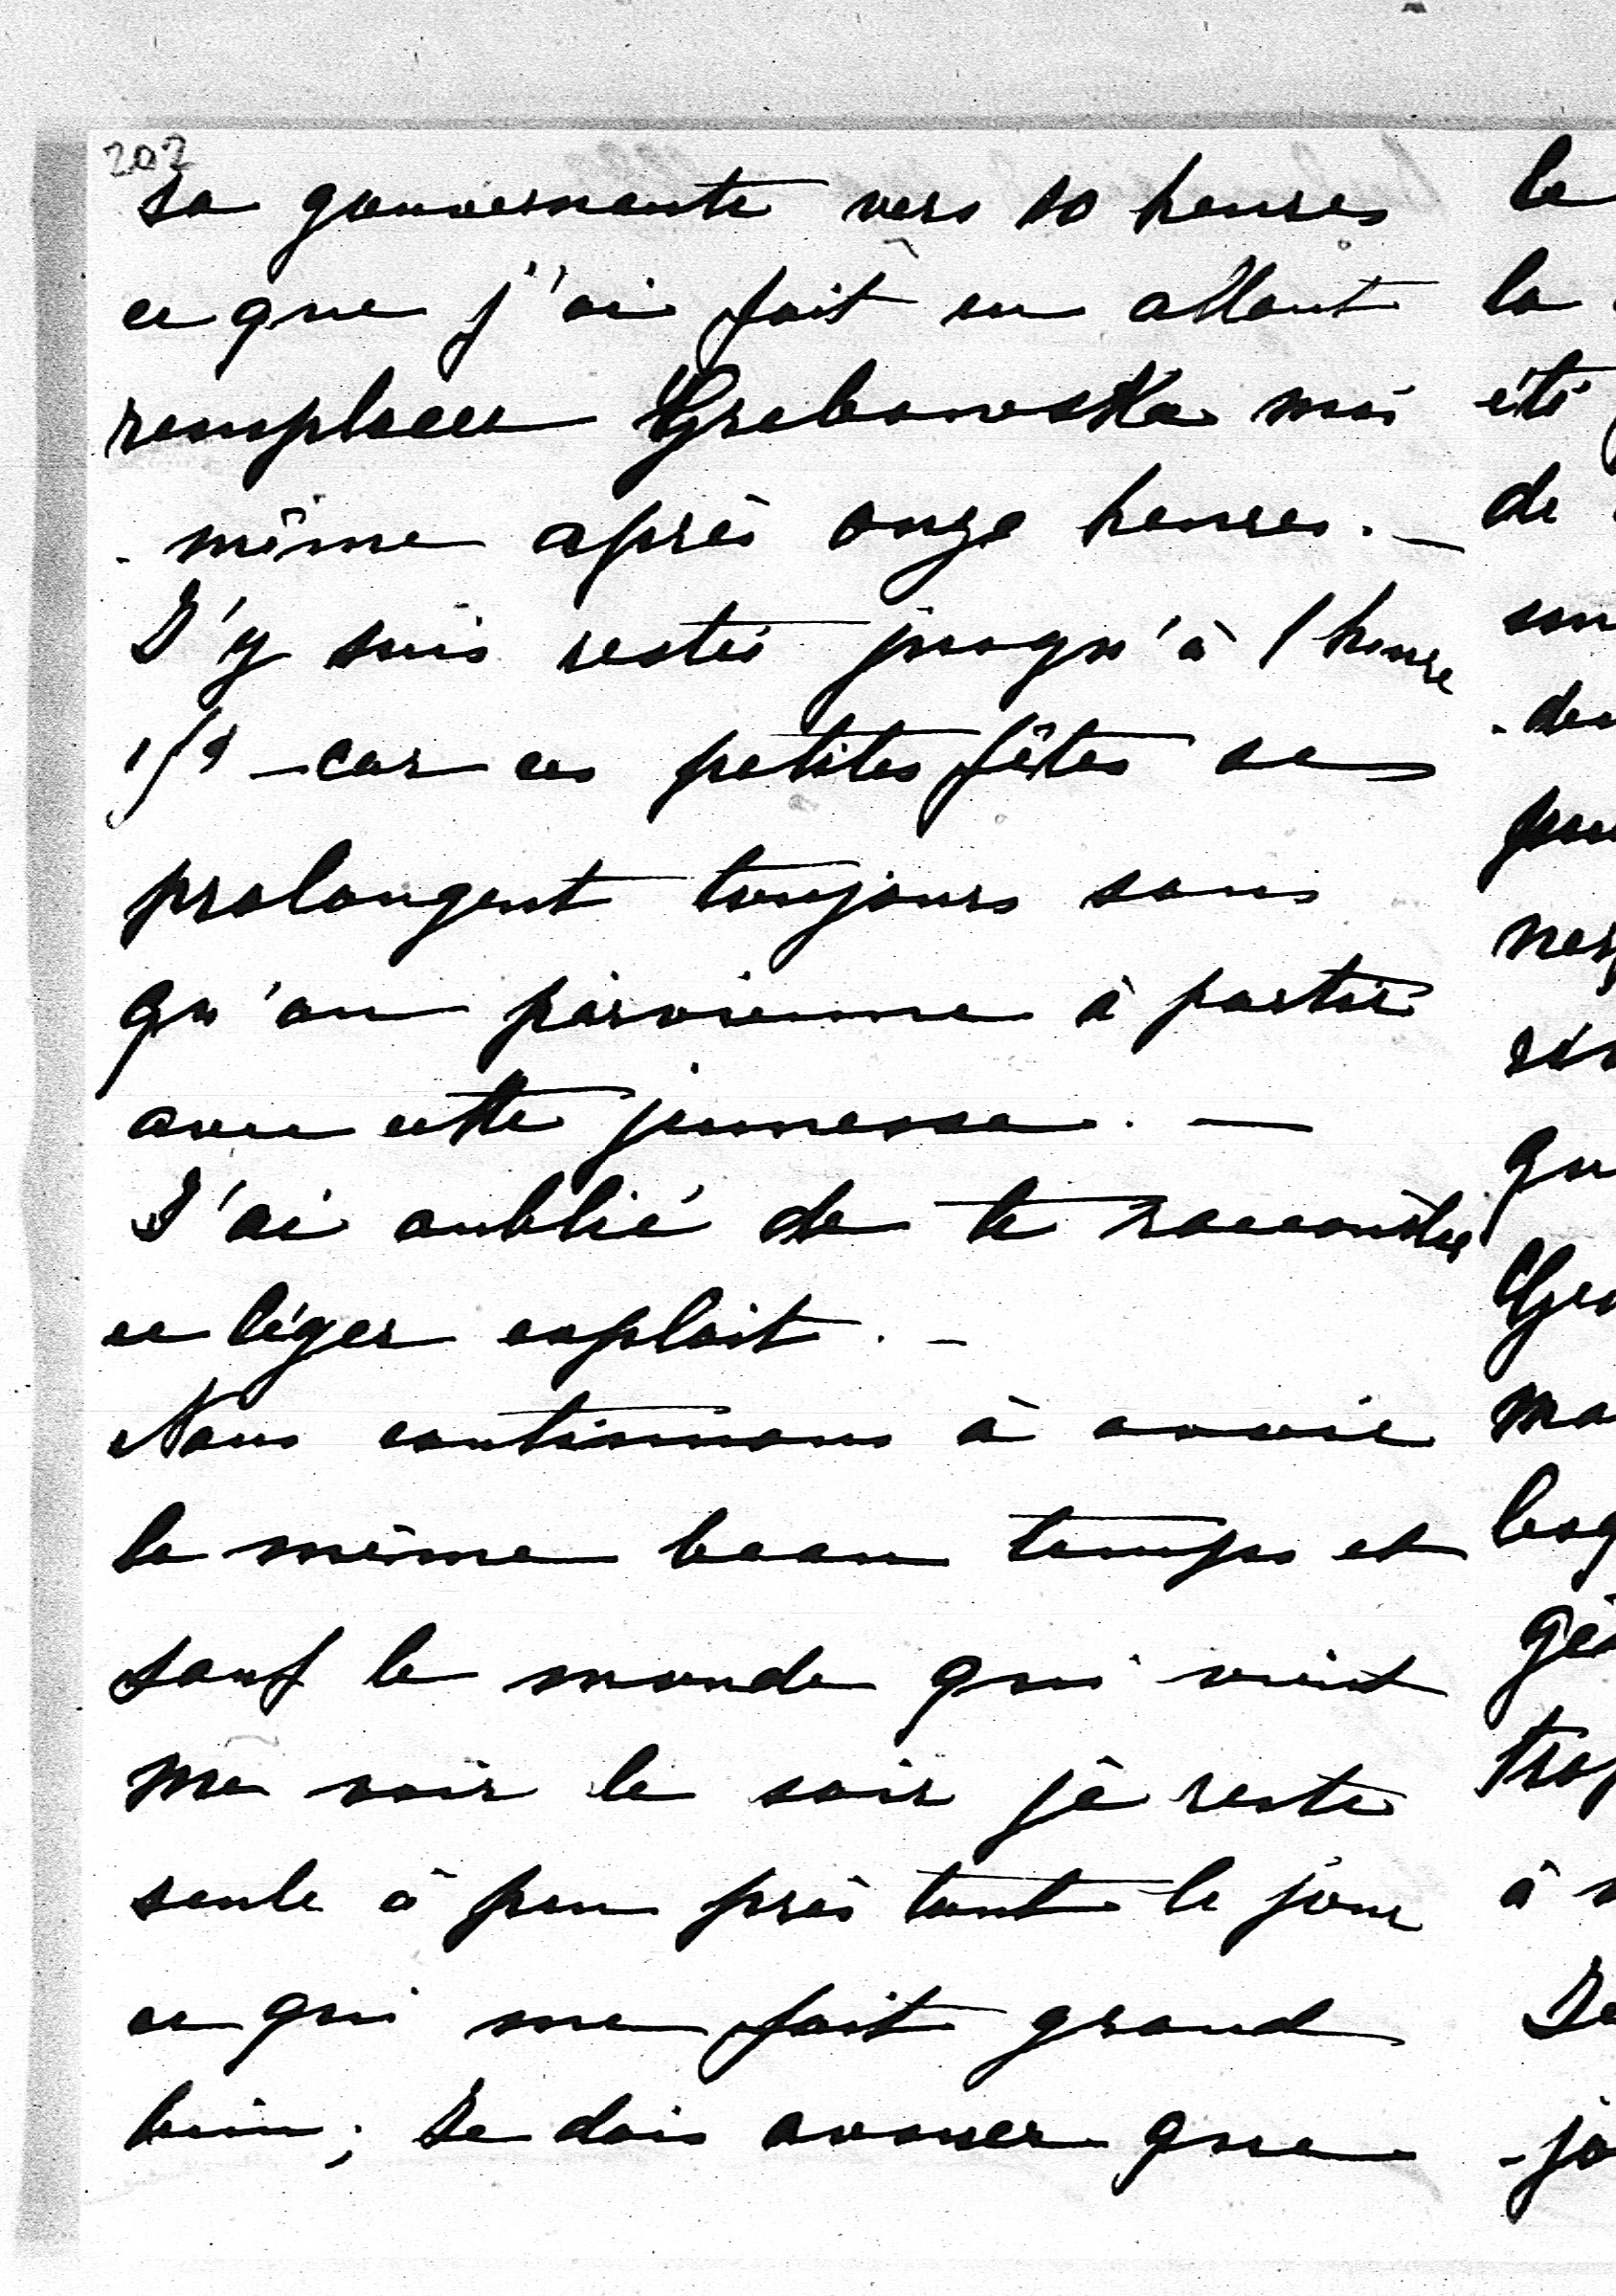 202
sa gouvernante vers 10 heures
ce que j'ai fait en allant
remplacer Grabowska moi
- même après onze heures. —
J'y suis restée jusqu'à 1 heure
1/2 — car ces petites fêtes se
prolongent toujours sans
qu'on parvienne à partir
avec cette jeunesse. —
J'ai oublié de te raconter
ce léger exploit. —
Nous continuons à avoir
le même beau temps et
sauf le monde qui vient
me voir le soir je reste
seule à peu près tout le jour
ce qui me fait grand
bien; Je dois avouer que
le
la
été
de